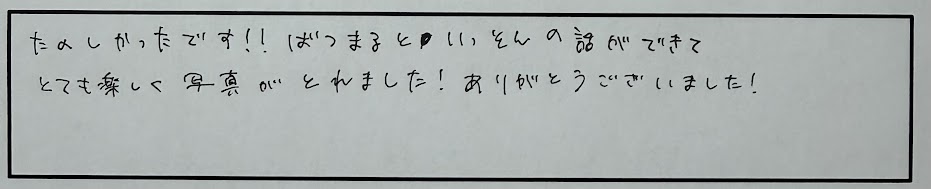 たのしかったです!! ばつまると いっそんの話ができて
とても楽しく写真がとれました! ありがとうございました!